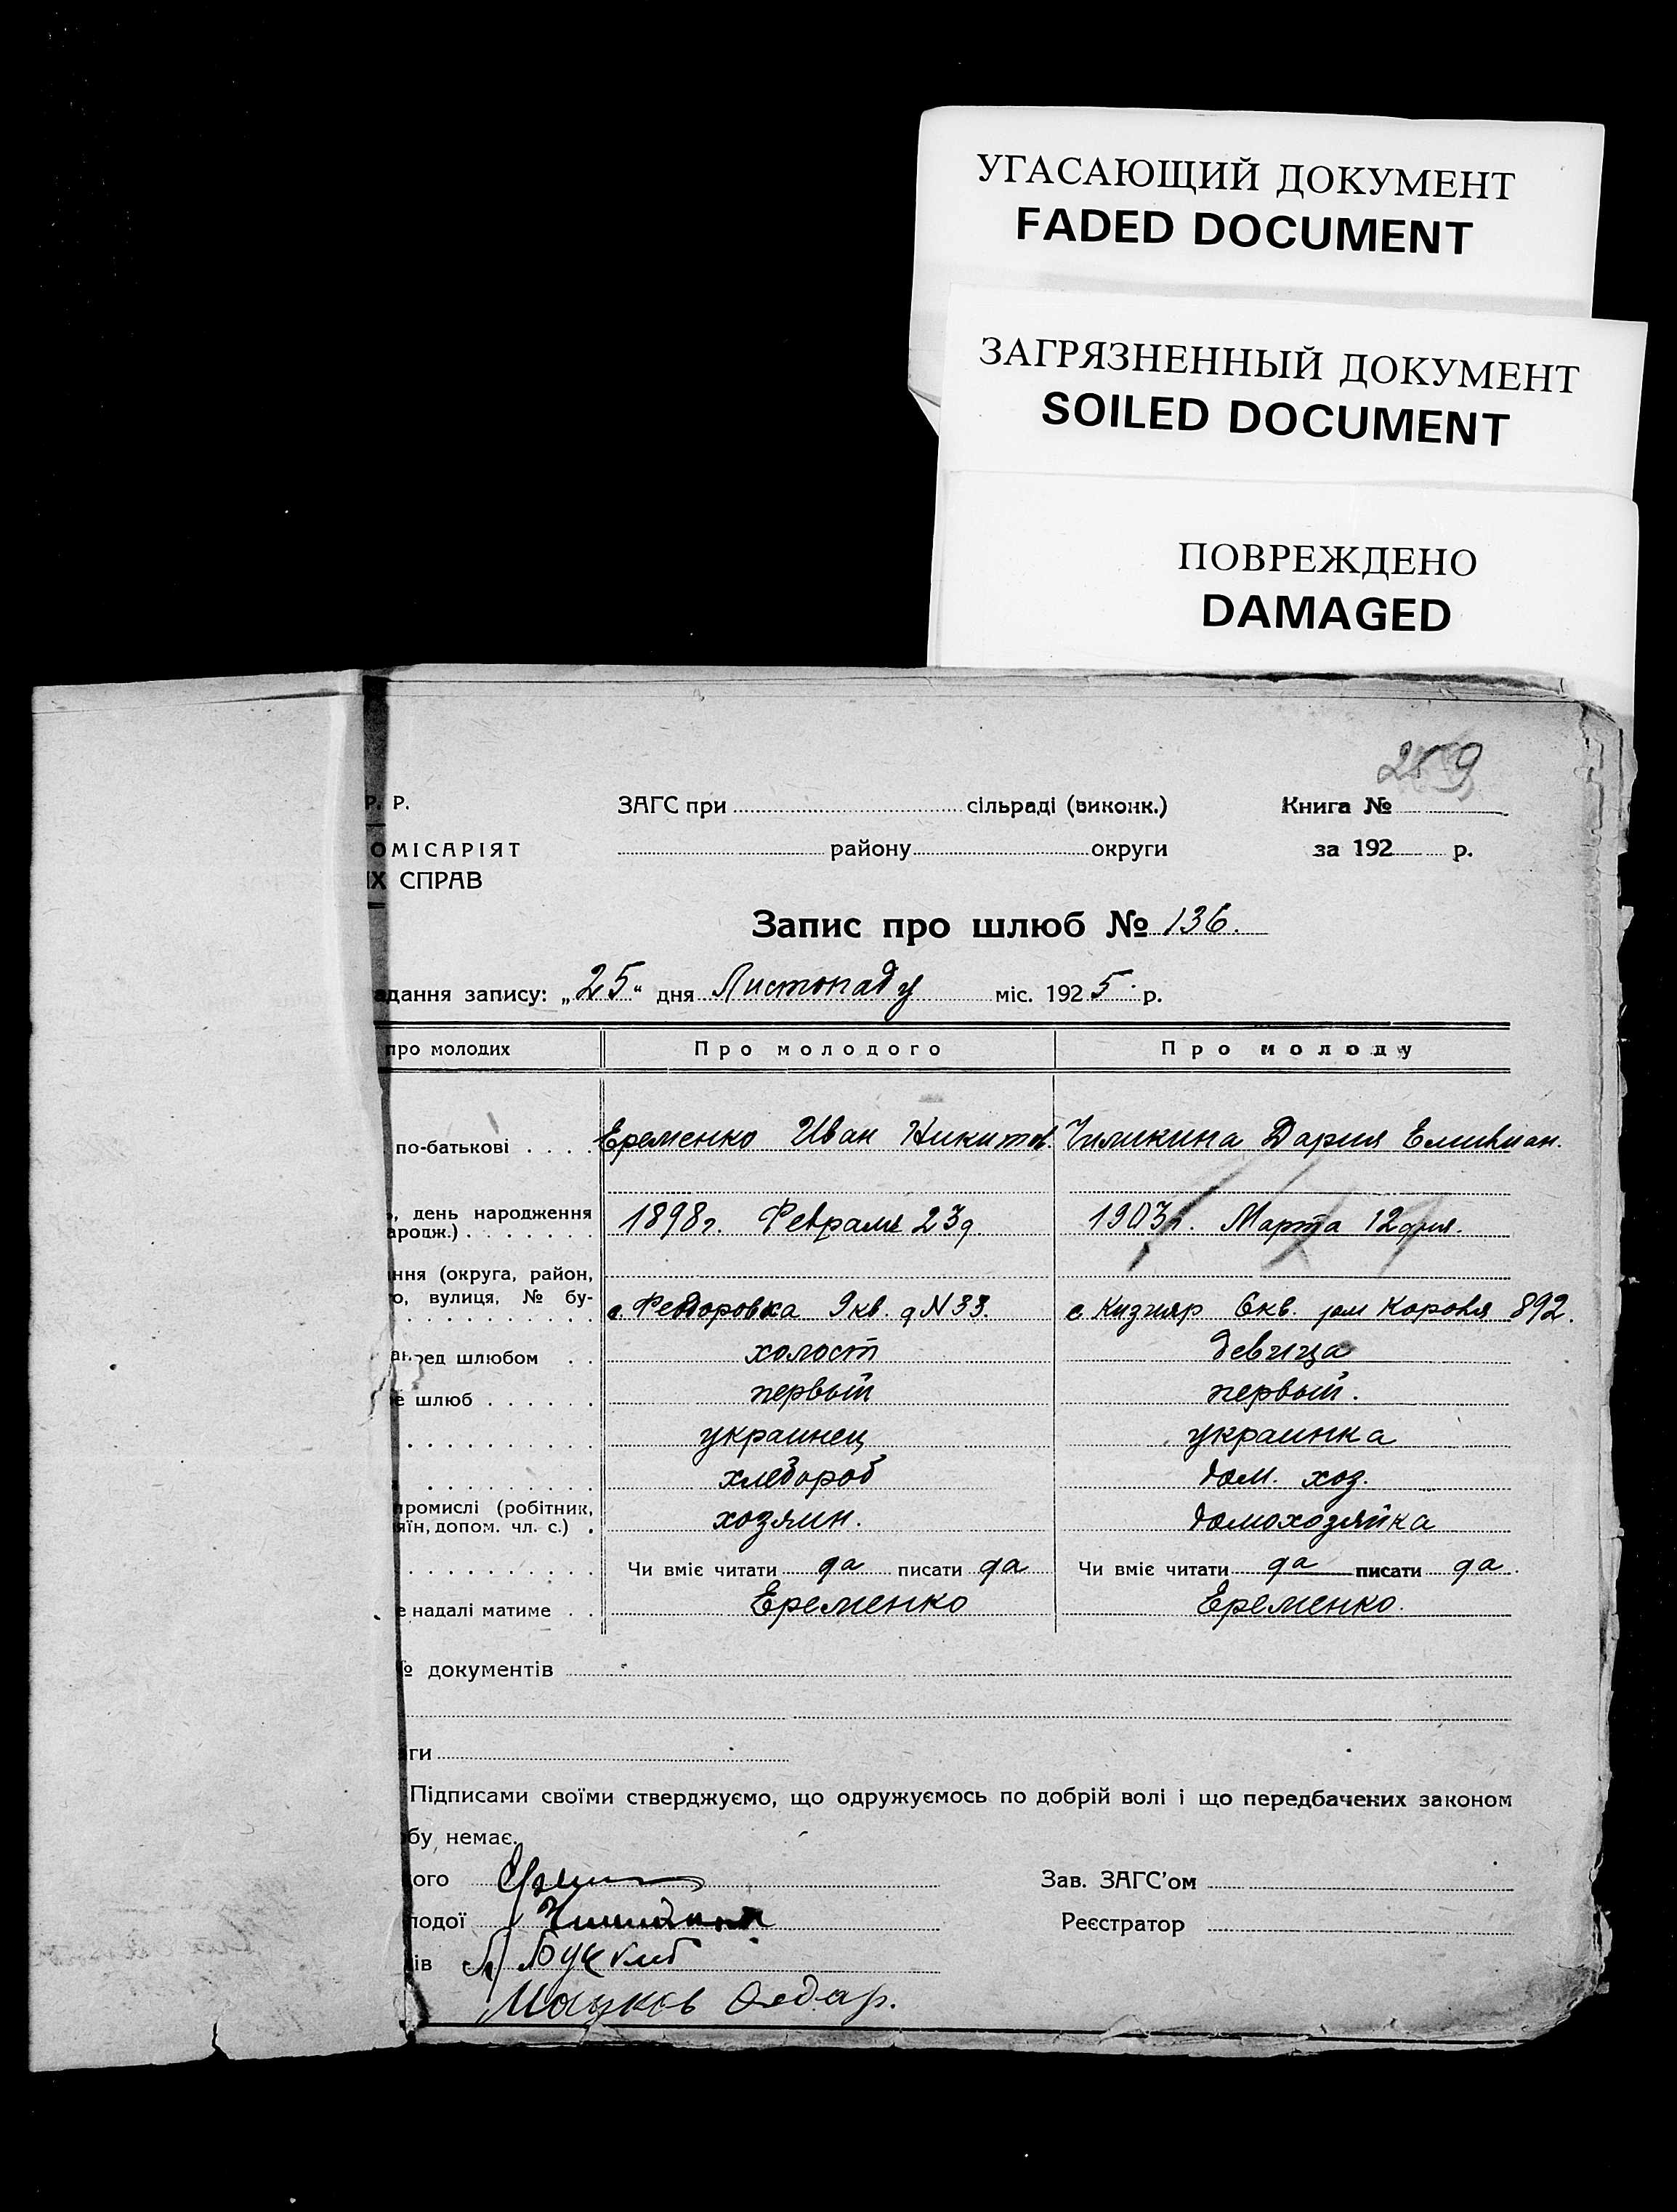 УГАСАЮЩИЙ ДОКУМЕНТ
FADED DOCUMENT
ЗАГРЯЗНЕННЫЙ ДОКУМЕНТ
SOILED DOCUMENT
ПОВРЕЖДЕНО
DAMAGED
259
Р. Р. ЗАГС при сільраді (виконк.) Книга №
ОМІСАРІЯТ району округи за 192 р.
ІХ СПРАВ
Запис про шлюб № 136.
адання запису: „25“ дня Листопаду міс. 1925 р.
про молодих Про молодого Про молоду
по-батькові Еременко Иван Никитов. Дария Емилиан.
день народження
ародж.) 1898 г. Февраля 23 д. 1903 г. Марта 12 дня.
ння (округа, район,
о, вулиця, № бу- с. Федоровка 9 кв. д N 33. с Кизияр 6 кв. 892.
перед шлюбом холост девица
е шлюб первый первый.
украинец украинка
хлебороб дом. хоз.
промислі (робітник,
яїн, допом. чл. с.) хозяин. домохозяйка
Чи вміє читати да писати да Чи вміє читати да писати да
е надалі матиме Еременко Еременко.
№ документів
ги
Підписами своїми стверджуємо, що одружуємось по добрій волі і що передбачених законом
бу немає.
ого Зав. ЗАГС'ом
лодої Реєстратор
ів